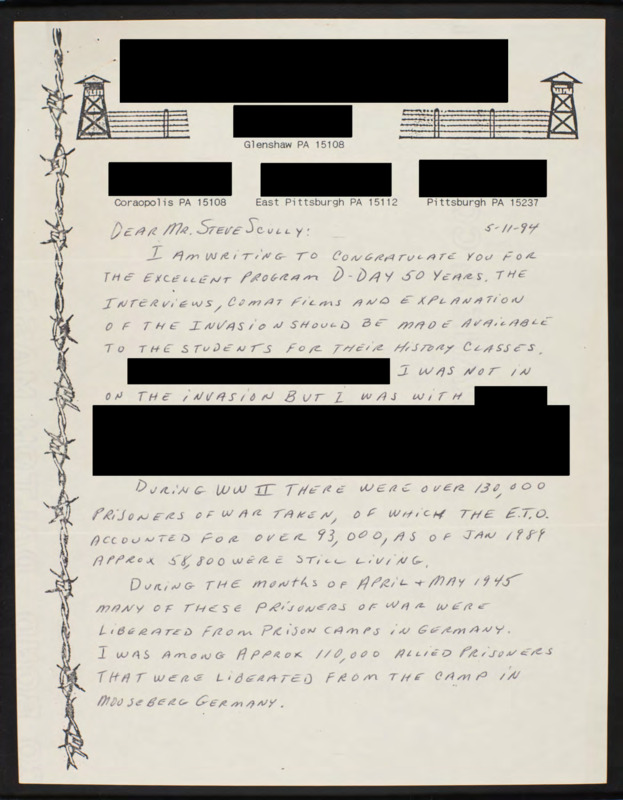 Glenshaw PA 15108
Coraopolis PA 15108 East Pittsburgh PA 15112 Pittsburgh PA 15237
DEAR MR. STEVE SCULLY: 5-11-94
I AM WRITING TO CONGRATULATE YOU FOR
THE EXCELLENT PROGRAM D-DAY 50 YEARS. THE
INTERVIEWS, COMAT FILMS AND EXPLANATION
OF THE INVASION SHOULD BE MADE AVAILABLE
TO THE STUDENTS FOR THEIR HISTORY CLASSES.
I WAS NOT IN
ON THE INVASION BUT I WAS WITH
DURING WW II THERE WERE OVER 130,000
PRISONERS OF WAR TAKEN, OF WHICH THE E.T.O.
ACCOUNTED FOR OVER 93,000, AS OF JAN 1989
APPROX 58,800 WERE STILL LIVING.
DURING THE MONTHS OF APRIL + MAY 1945
MANY OF THESE PRISONERS OF WAR WERE
LIBERATED FROM PRISON CAMPS IN GERMANY.
I WAS AMONG APPROX 110,000 ALLIED PRISONERS
THAT WERE LIBERATED FROM THE CAMP IN
MOOSEBERG GERMANY.